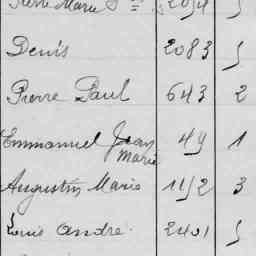 Pierre Marie
Denis 2083 5
Pierre Paul 643 2
Emmanuel Jean Marie 49 1
Augustin Marie 1152 3
Louis André 2401 5